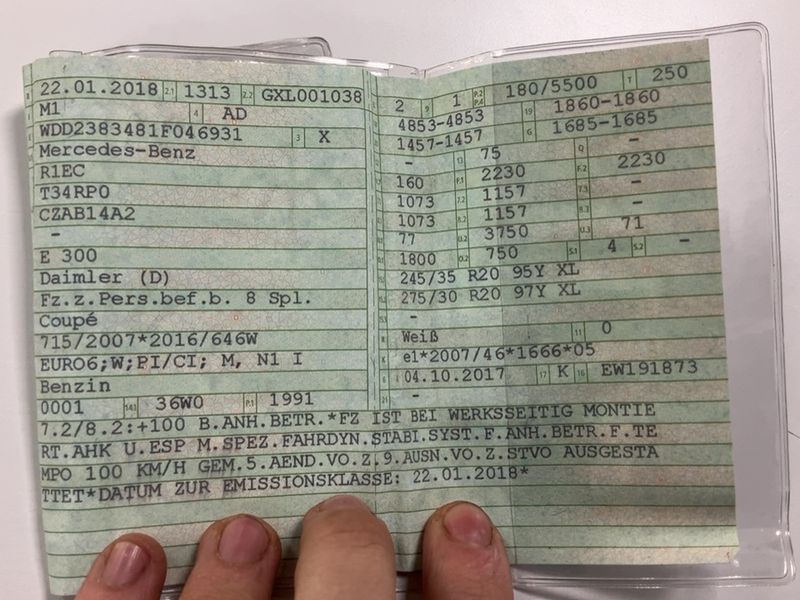 22.01.2018 2.1 1313 2.2 GXL001038
M1 4 AD
WDD2383481F046931 3 X
Mercedes-Benz
R1EC
T34RP0
CZAB14A2
-
E 300
Daimler (D)
Fz.z.Pers.bef.b. 8 Spl.
Coupé
715/2007*2016/646W
EURO6;W;PI/CI; M, N1 I
Benzin
0001 14.1 36W0 P.1 1991
2 9 1 P.2 P.4 180/5500 T 250
4853-4853 19 1860-1860
1457-1457 G 1685-1685
- 13 75 Q -
160 F.1 2230 F.2 2230
1073 7.2 1157 7.3 -
1073 8.2 1157 8.3 -
77 U.2 3750 U.3 71
1800 O.2 750 S.1 4 S.2 -
245/35 R20 95Y XL
275/30 R20 97Y XL
-
Weiß 11 0
e1*2007/46*1666*05
04.10.2017 17 K 16 EW191873
21 -
7.2/8.2:+100 B.ANH.BETR.*FZ IST BEI WERKSSEITIG MONTIE
RT.AHK U.ESP M.SPEZ.FAHRDYN.STABI.SYST.F.ANH.BETR.F.TE
MPO 100 KM/H GEM.5.AEND.VO.Z.9.AUSN.VO.Z.STVO AUSGESTA
TTET*DATUM ZUR EMISSIONSKLASSE: 22.01.2018*